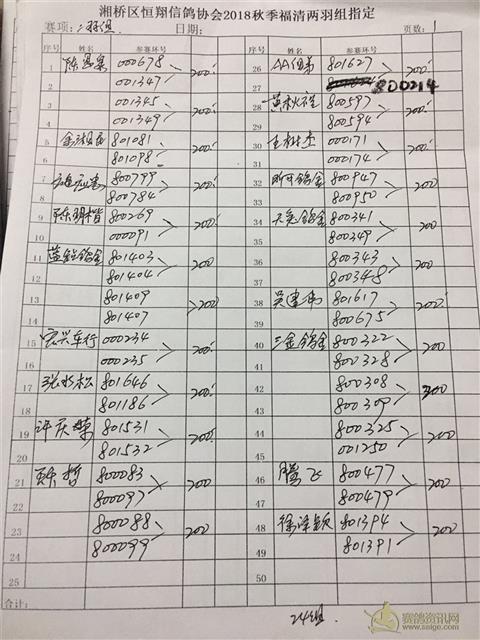 湘桥区恒翔信鸽协会2018秋季福清两羽组指定
赛项: 二羽组 日期: 页数: 1
序号 姓名 参赛环号 序号 姓名 参赛环号
1 000678 200
2 001347
3 001345 200
4 001349
5 801081 200
6 801098
7 800799 200
8 800784
9 陈明楷 800269 200
10 000091
11 801403 200
12 801404
13 801409 200
14 801407
15 宏兴车行 000234 200
16 000235
17 张水松 801646 200
18 801186
19 许庆 801531 200
20 801532
21 哲 800083 200
22 800097
23 800088 200
24 800099
25
26 AA 801627 200
27 800214
28 800597 200
29 800594
30 000171 200
31 000174
32 鸽舍 800947 200
33 800950
34 鸽舍 800341 200
35 800349
36 800343 200
37 800348
38 801617 200
39 800675
40 三金鸽舍 800322 200
41 800328
42 800308 200
43 800309
44 800325 200
45 001250
46 腾飞 800477 200
47 800479
48 801394 200
49 801391
50
合计:
24组
赛鸽资讯网
www.saige.com